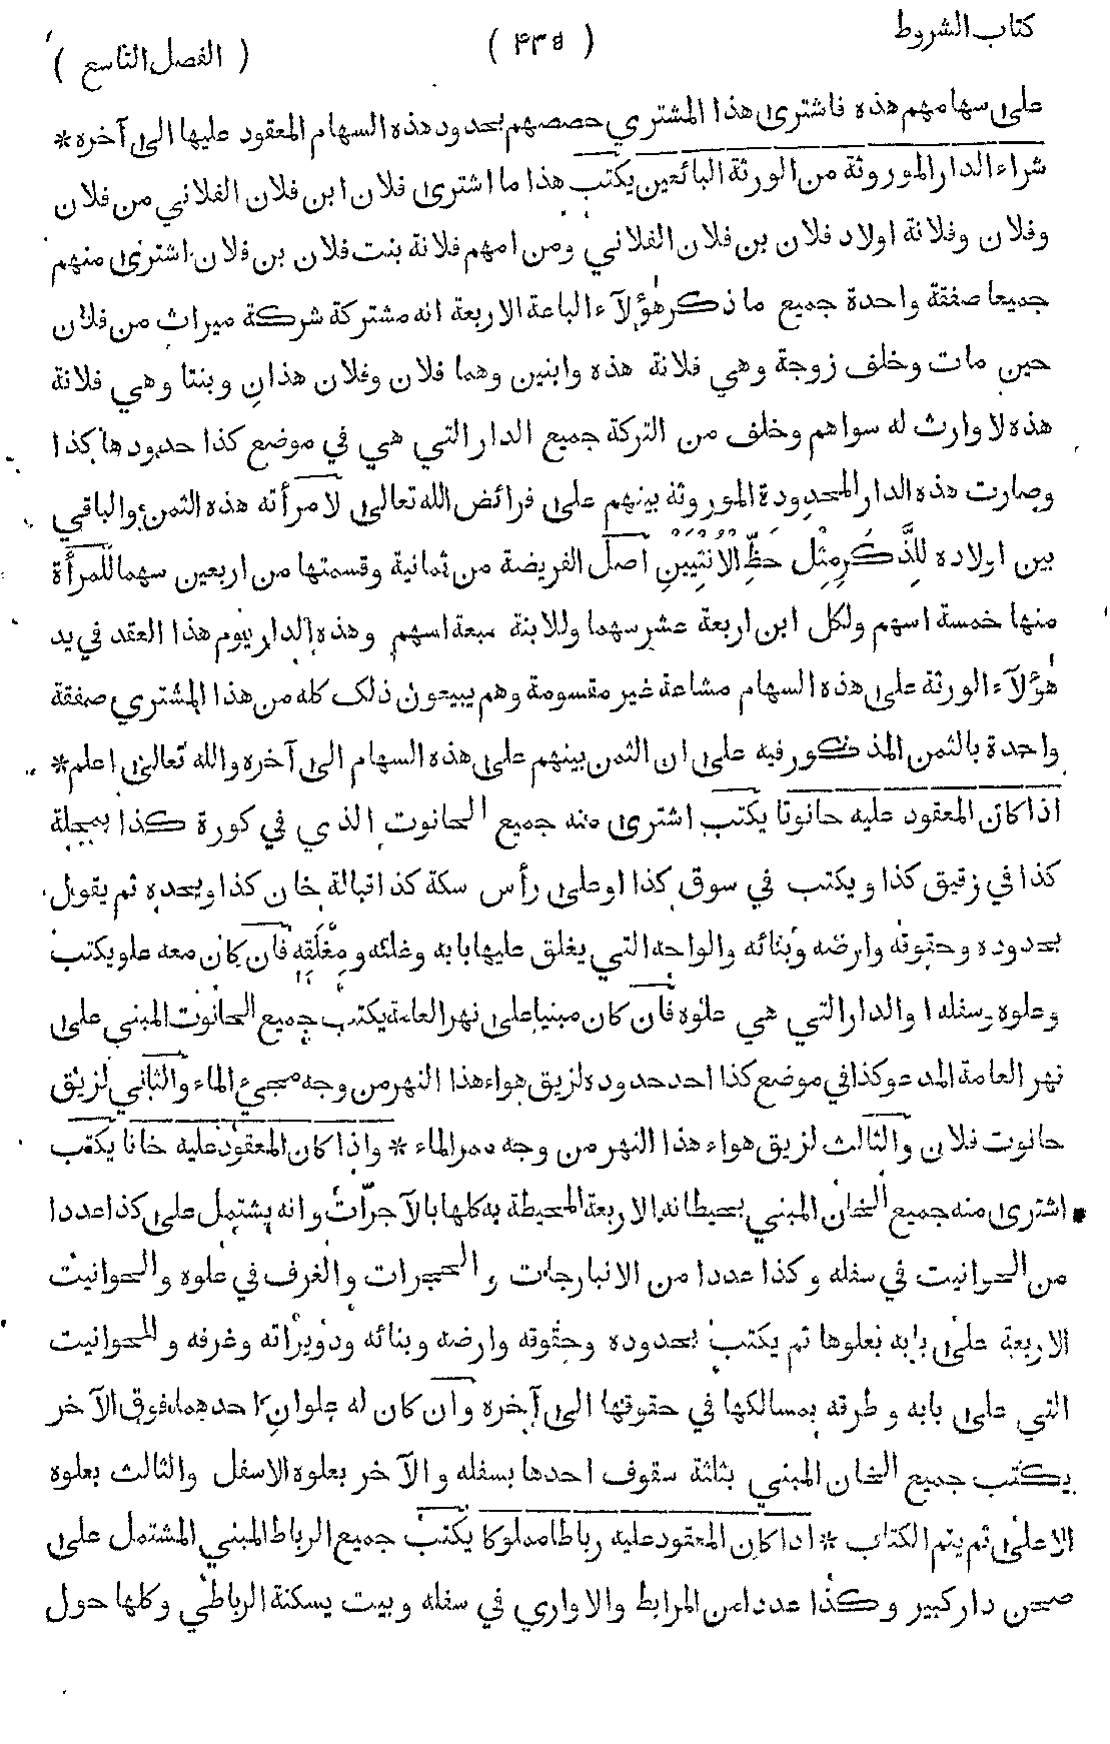 كتاب الشروط
( ۴۳۵ )
( الفصل التاسع )
على سهامهم هذه فاشترى هذا المشتري حصصهم بحدود هذه السهام المعقود عليها الى آخره *
شراء الدار الموروثة من الورثة البائعين يكتب هذا ما اشترى فلان ابن فلان الفلاني من فلان
وفلان وفلانة اولاد فلان بن فلان الفلاني ومن امهم فلانة بنت فلان بن فلان اشترى منهم
جميعا صفقة واحدة جميع ما ذكر هٰؤلآء الباعة الاربعة انه مشتركة شركة ميراث من فلان
حين مات وخلف زوجة وهي فلانة هذه وابنين وهما فلان وفلان هذانِ وبنتا وهي فلانة
هذه لا وارث له سواهم وخلف من التركة جميع الدار التي هي في موضع كذا حدودها كذا
وصارت هذه الدار المحدودة الموروثة بينهم على فرائض الله تعالى لامرأته هذه الثمن والباقي
بين اولاده لِلذَّكَرِ مِثْل حَظِّ الْاُنْثَيَيْنِ اصل الفريضة من ثمانية وقسمتها من اربعين سهما للمرأة
منها خمسة اسهم ولكل ابن اربعة عشر سهما وللابنة سبعة اسهم وهذه الدار يوم هذا العقد في يد
هٰؤلآء الورثة على هذه السهام مشاعة غير مقسومة وهم يبيعون ذلك كله من هذا المشتري صفقة
واحدة بالثمن المذكور فيه على ان الثمن بينهم على هذه السهام الى آخره والله تعالى اعلم *
اذا كان المعقود عليه حانوتا يكتب اشترى منه جميع الحانوت الذي في كورة كذا بمحلة
كذا في زقيق كذا ويكتب في سوق كذا او على رأس سكة كذا قبالة خان كذا ويحده ثم يقول
بحدوده وحقوقه وارضه وبنائه والواحه التي يغلق عليها بابه وغلقه ومِغْلَقِه فان كان معه علو يكتب
وعلوه وسفله او الدار التي هي علوه فان كان مبنيا على نهر العامة يكتب جميع الحانوت المبني على
نهر العامة المدعو كذا في موضع كذا احد حدوده لزيق هواء هذا النهر من وجه مجيء الماء والثاني لزيق
حانوت فلان والثالث لزيق هواء هذا النهر من وجه ممر الماء * واذا كان المعقود عليه خانا يكتب
اشترى منه جميع الخان المبني بحيطانه الاربعة المحيطة به كلها بالآجرّات وانه يشتمل على كذا عددا
من الحوانيت في سفله وكذا عددا من الانبارجات والحجرات والغرف في علوه والحوانيت
الاربعة على بابه بعلوها ثم يكتب بحدوده وحقوقه وارضه وبنائه ودُوَيْراته وغرفه والحوانيت
التي على بابه وطرقه بمسالكها في حقوقها الى آخره وان كان له علوانِ احدهما فوق الآخر
يكتب جميع الخان المبني بثلثة سقوف احدها بسفله والآخر بعلوه الاسفل والثالث بعلوه
الاعلى ثم يتم الكتاب * اذا كان المعقود عليه رباطا مملوكا يكتب جميع الرباط المبني المشتمل على
صحن دار كبير وكذا عددا من المرابط والاواري في سفله وبيت يسكنة الرباطي وكلها حول